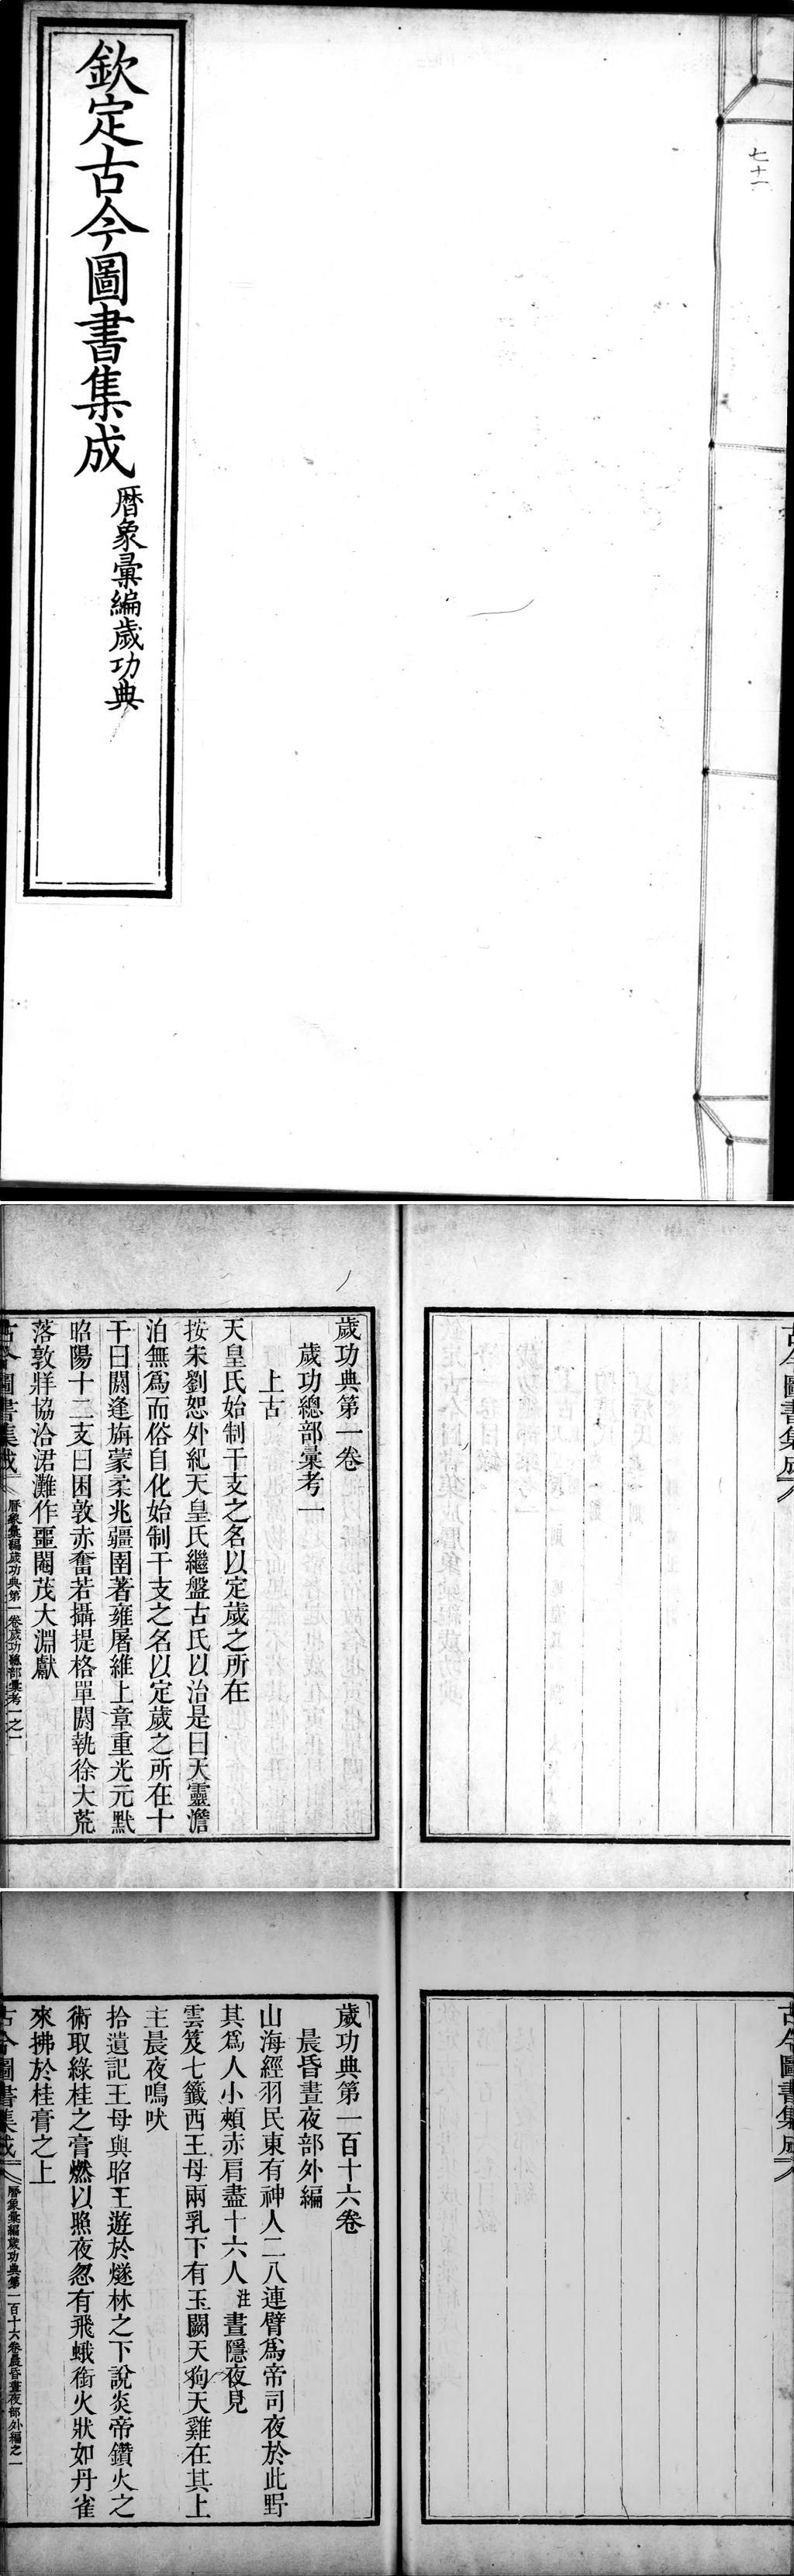 七十一
欽定古今圖書集成
曆象彙編歲功典
古今圖書集成
歲功典第一卷
歲功總部彙考一
上古
天皇氏始制干支之名以定歲之所在
按宋劉恕外紀天皇氏繼盤古氏以治是曰天靈澹
泊無為而俗自化始制干支之名以定歲之所在十
干曰閼逢旃蒙柔兆疆圉著雍屠維上章重光元黓
昭陽十二支曰困敦赤奮若攝提格單閼執徐大荒
落敦牂協洽涒灘作噩閹茂大淵獻
古今圖書集成 曆象彙編歲功典第一卷歲功總部彙考一之一
古今圖書集成
歲功典第一百十六卷
晨昏晝夜部外編
山海經羽民東有神人二八連臂爲帝司夜於此野
其爲人小頰赤肩盡十六人注晝隱夜見
雲笈七籤西王母兩乳下有玉闕天狗天雞在其上
主晨夜鳴吠
拾遺記王母與昭王遊於燧林之下說炎帝鑽火之
術取綠桂之膏燃以照夜忽有飛蛾銜火狀如丹雀
來拂於桂膏之上
古今圖書集成 曆象彙編歲功典第一百十六卷晨昏晝夜部外編之一